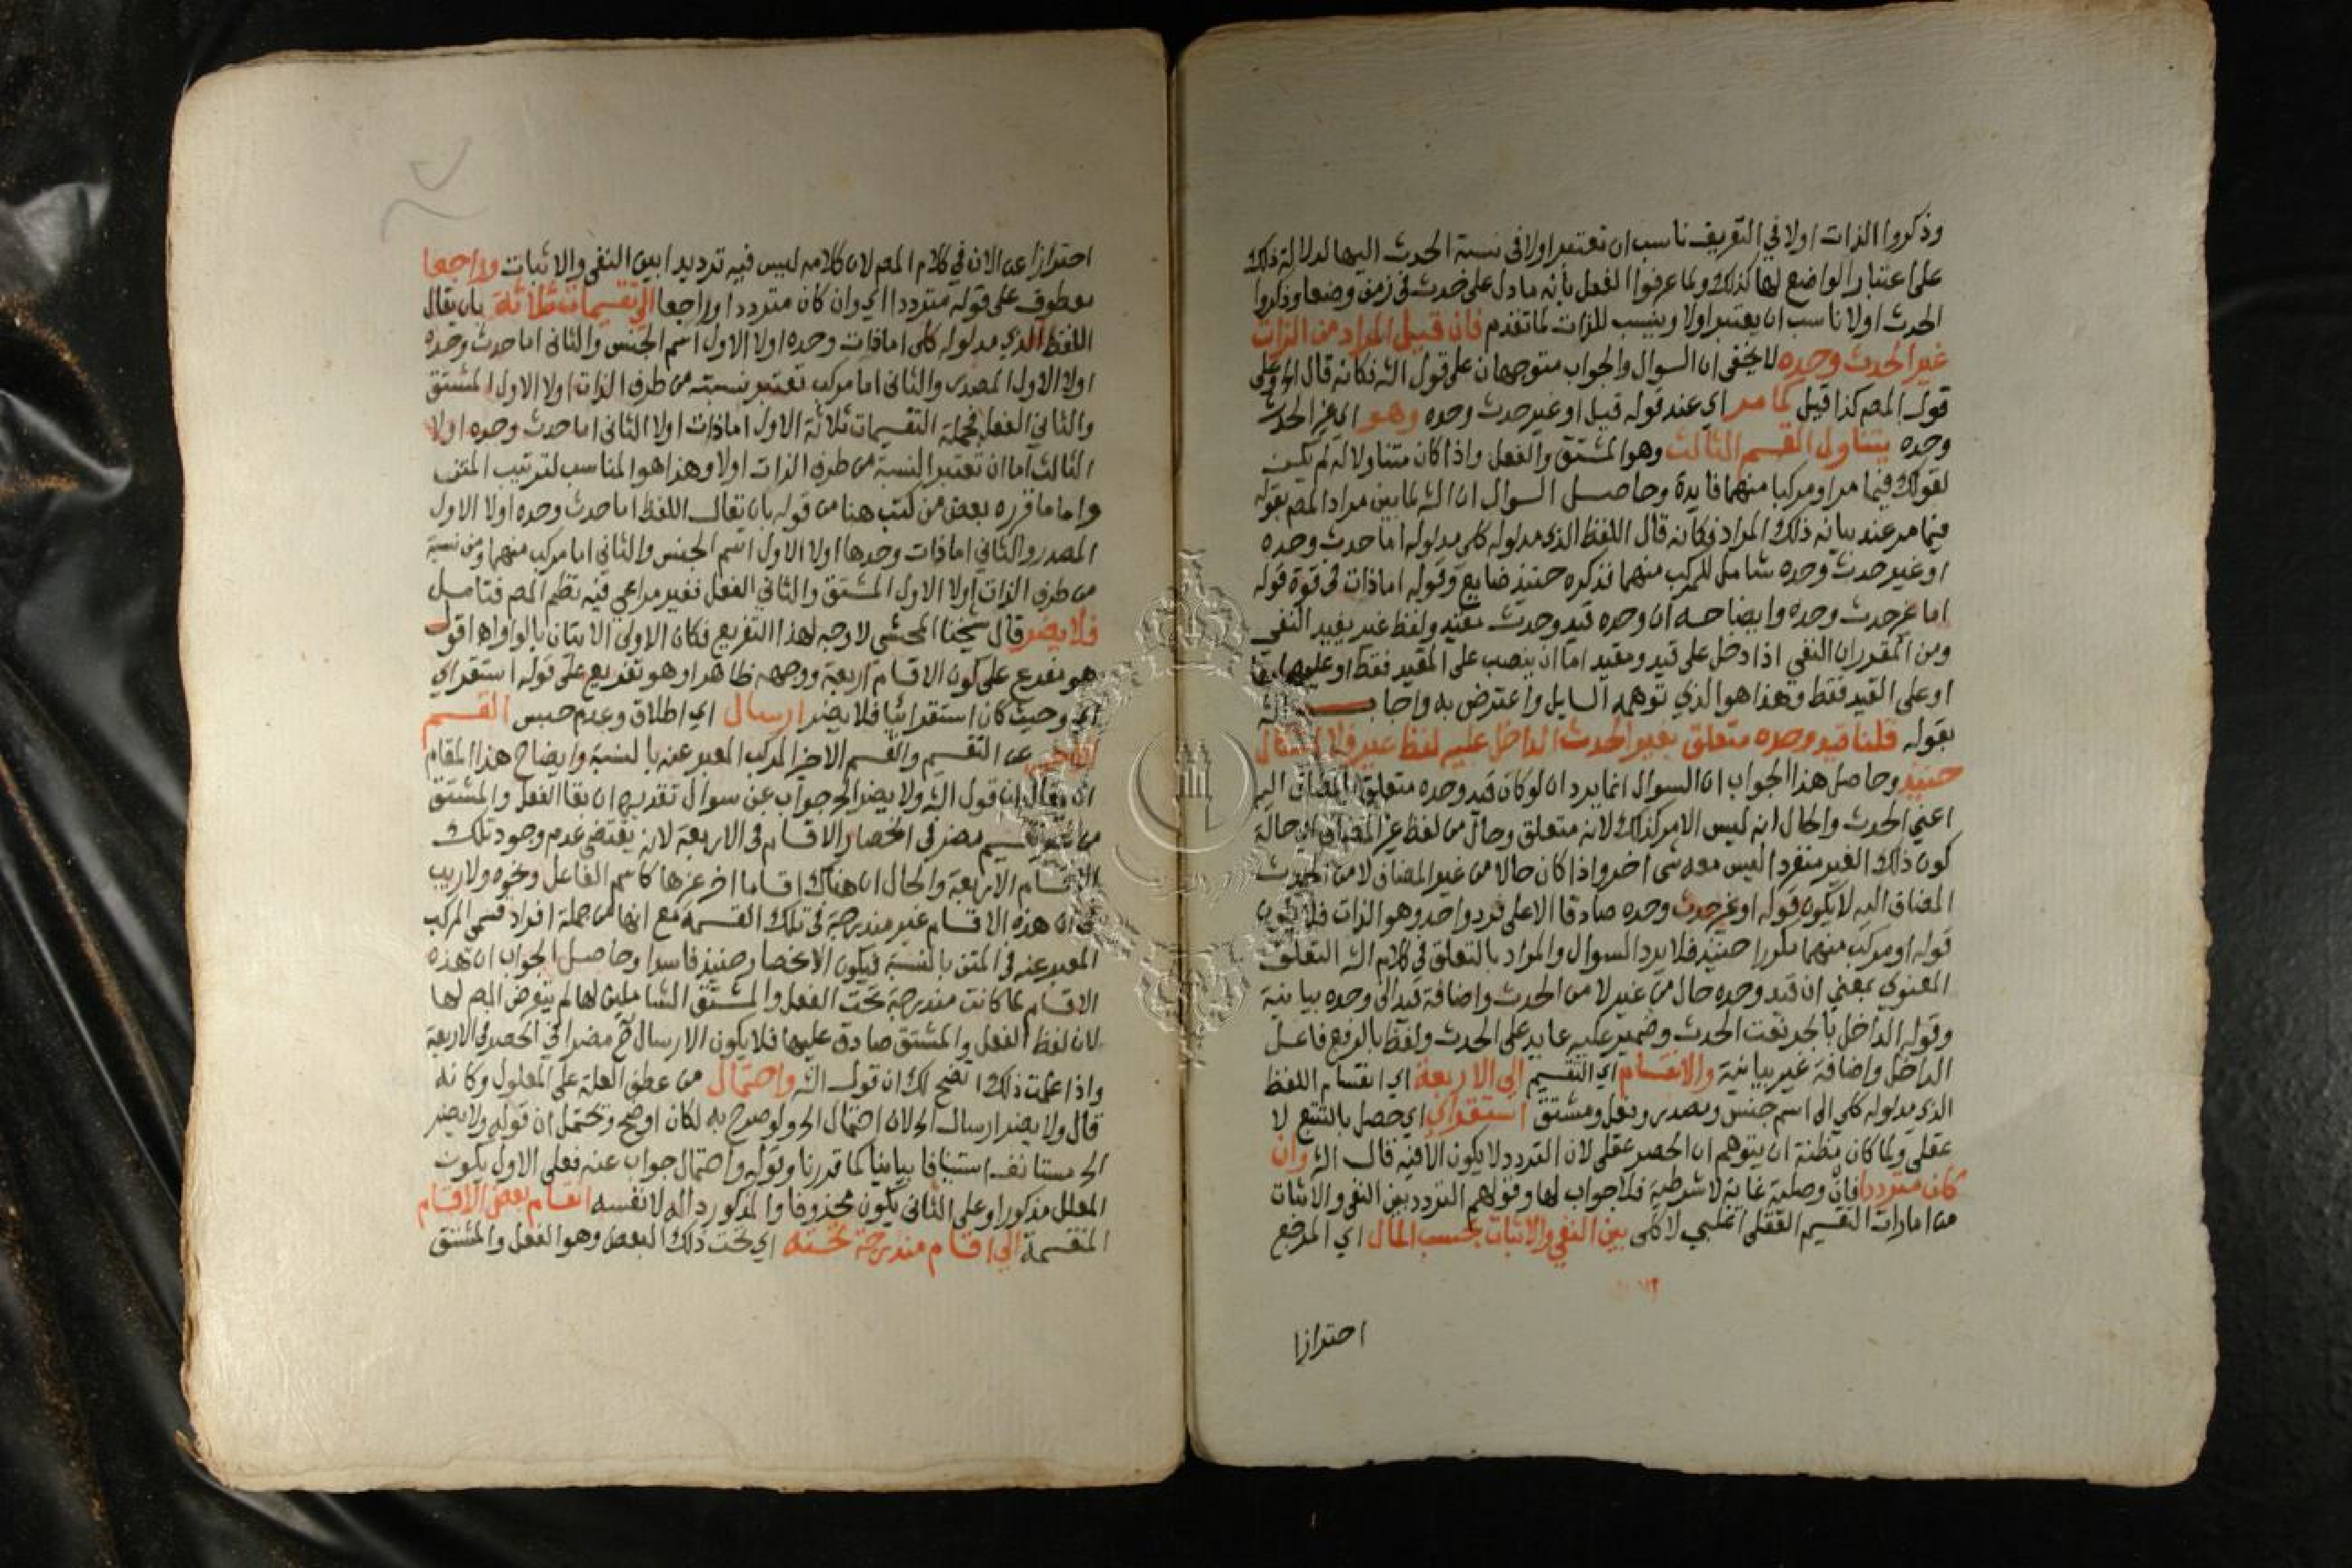 وذكروا الذات اولا في التعريف ناسب ان تعتبر اولا في نسبة الحدث اليها لدلالة ذلك
على اعتبار الواضع لها كذلك ولما عرفوا الفعل بأنه ما دل على حدث في زمن وضعا وذكروا
الحدث اولا ناسب ان يعتبر اولا وينسب للذات لما تقدم فان قيل المراد من الذات
غير الحدث وحده لا يخفى ان السوال والجواب متوجهان على قول الشه فكانه قال الخ وعلى
قول المصه كذا قيل كما مر اي عند قوله قبل او غير حدث وحده وهو اي غير الحدث
وحده يتناول القسم الثالث وهو المشتق والفعل واذا كان متناولا له لم يكن
لقولك فيما مر او مركبا منهما فايدة وحاصل السوال ان الشه لما بين مراد المصه بقوله
فيما مر عند بيانه ذلك المراد فكانه قال اللفظ الذي مدلوله كلي مدلوله اما حدث وحده
او غير حدث وحده شامل للمركب منهما فذكره حينيذ ضايع وقوله اما ذات في قوة قوله
اما غير حدث وحده وايضاحه ان وحده قيد وحدث مقيد ولفظ غير يفيد النفي
ومن المقرر ان النفي اذا دخل على قيد ومقيد اما ان ينصب على المقيد فقط او عليهما معا
او على القيد فقط وهذا هو الذي توهمه السايل واعترض به واجاب الشه
بقوله قلنا قيد وحده متعلق بغير الحدث الداخل عليه لفظ غير فلا اشكال
حينيذ وحاصل هذا الجواب ان السوال انما يرد ان لو كان قيد وحده متعلق بالمضاف اليه
اعني الحدث والحال انه ليس الامر كذلك لانه متعلق وحال من لفظ غير المضاف اي حالة
كون ذلك الغير منفردا ليس معه شى اخر واذا كان حالا من غير المضاف لا من الحدث
المضاف اليه لا يكون قوله او غير حدث وحده صادقا الا على فرد واحد وهو الذات فلا يكون
قوله او مركب منهما مكررا حينيذ فلا يرد السوال والمراد بالتعلق في كلام الشه التعلق
المعنوي بمعني ان قيد وحده حال من غير لا من الحدث واضافة قيد الى وحده بيانية
وقوله الداخل بالجر نعت الحدث وضمير عليه عايد على الحدث ولفظ بالرفع فاعل
الداخل واضافة غير بيانية والانقسام اي التقسيم الى الاربعة اي انقسام اللفظ
الذي مدلوله كلي الى اسم جنس ومصدر وفعل ومشتق استقراي اي حصل بالتتبع لا
عقلي ولما كان مظنة ان يتوهم ان الحصر عقلي لان التردد لا يكون الا فيه قال الشه وان
كان مترددا فان وصلية غاية لا شرطية فلا جواب لها وقولهم التردد بين النفي والاثبات
من امارات التقسيم العقلي اغلبي لا كلى بين النفي والاثبات بحسب المال اي المرجع
احترازا
احترازا عن الان في كلام المصه لان كلامه ليس فيه ترديد ابين النفي والاثبات وراجعا
معطوف على قوله مترددا اي وان كان مترددا وراجعا الى تقسيمات ثلاثة بان يقال
اللفظ الذي مدلوله كلي اما ذات وحده اولا الاول اسم الجنس والثاني اما حدث وحده
اولا الاول المصدر والثاني اما مركب تعتبر نسبته من طرف الذات اولا الاول المشتق
والثاني الفعل فجملة التقسيمات ثلاثة الاول اما ذات اولا الثاني اما حدث وحده اولا
الثالث اما ان تعتبر النسبة من طرف الذات اولا وهذا هو المناسب لترتيب المتن
واما ما قرره بعض من كتب هنا من قوله بان يقال اللفظ اما حدث وحده اولا الاول
المصدر والثاني اما ذات وحدها اولا الاول اسم الجنس والثاني اما مركب منهما ومن نسبة
من طرف الذات اولا الاول المشتق والثاني الفعل فغير مراعي فيه نظم المصه فتامل
فلا يضر قال شيخنا المحشي لا وجه لهذا التفريع فكان الاولى الاتيان بالواو اه اقول
هو تفرع على كون الاقسام اربعة ووجهه ظاهر او هو تفريع على قوله استقراي
اي وحيث كان استقرائيا فلا يضر ارسال اي اطلاق وعدم حبس القسم
الاخير عن التقسيم والقسم الاخير المركب المعبر عنه بالنسبة وايضاح هذا المقام
ان يقال ان قول الشه ولا يضر الخ جواب عن سوال تقديره ان بقا الفعل والمشتق
من غير تقسيم مضر في انحصار الاقسام في الاربعة لانه يقتضي عدم وجود تلك
الاقسام الاربعة والحال ان هناك اقساما اخر غيرها كاسم الفاعل ونحوه ولا ريب
في ان هذه الاقسام غير مندرجة في تلك القسمة مع انها من جملة افراد قسمي المركب
المعبر عنه في المتن بالنسبة فيكون الانحصار حينيذ فاسدا وحاصل الجواب ان هذه
الاقسام لما كانت مندرجة تحت الفعل والمشتق الشاملين لها لم يتعرض المصه لها
لان لفظ الفعل والمشتق صادق عليها فلا يكون الارسال ح مضرا في الحصر في الاربعة
واذا علمت ذلك اتضح لك ان قول الشه واحتمال من عطف العلة على المعلول وكانه
قال ولا يضر ارسال الخ لان احتمال الخ ولو صرح به لكان اوضح وتحتمل ان قوله ولا يضر
الخ مستانف استينافا بيانيا كما قدرنا وقوله واحتمال جواب عنه فعلى الاول يكون
المعلل مذكورا وعلى الثاني يكون محذوفا والمذكور دال له لا نفسه انقسام بعض الاقسام
المنقسمة الى اقسام مندرجة تحته اي تحت ذلك البعض وهو الفعل والمشتق